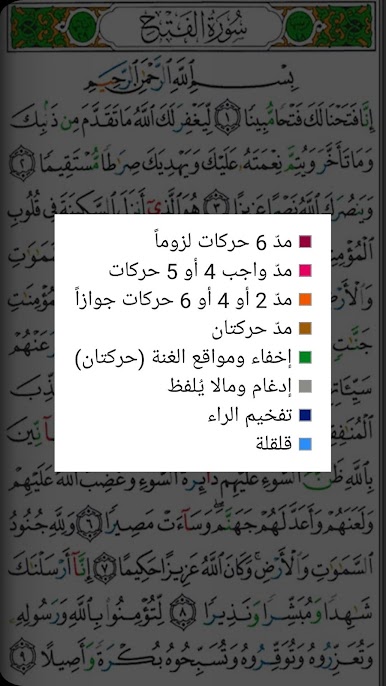 سُورَةُ الفَتْحِ
بِسْمِ ٱللَّهِ ٱلرَّحْمَٰنِ ٱلرَّحِيمِ
إِنَّا فَتَحْنَا لَكَ فَتْحًا مُّبِينًا ١ لِّيَغْفِرَ لَكَ ٱللَّهُ مَا تَقَدَّمَ مِن ذَنۢبِكَ
وَمَا تَأَخَّرَ وَيُتِمَّ نِعْمَتَهُۥ عَلَيْكَ وَيَهْدِيَكَ صِرَٰطًا مُّسْتَقِيمًا ٢
وَيَنصُرَكَ ٱللَّهُ نَصْرًا عَزِيزًا ٣ هُوَ ٱلَّذِىٓ أَنزَلَ ٱلسَّكِينَةَ فِى قُلُوبِ
مدّ 6 حركات لزوماً
مدّ واجب 4 أو 5 حركات
مدّ 2 أو 4 أو 6 حركات جوازاً
مدّ حركتان
إخفاء ومواقع الغنة (حركتان)
إدغام ومالا يُلفظ
تفخيم الراء
قلقلة
بِٱللَّهِ ظَنَّ ٱلسَّوْءِ عَلَيْهِمْ دَآئِرَةُ ٱلسَّوْءِ وَغَضِبَ ٱللَّهُ عَلَيْهِمْ
وَلَعَنَهُمْ وَأَعَدَّ لَهُمْ جَهَنَّمَ وَسَآءَتْ مَصِيرًا ٦ وَلِلَّهِ جُنُودُ
ٱلسَّمَٰوَٰتِ وَٱلْأَرْضِ وَكَانَ ٱللَّهُ عَزِيزًا حَكِيمًا ٧ إِنَّآ أَرْسَلْنَٰكَ
شَٰهِدًا وَمُبَشِّرًا وَنَذِيرًا ٨ لِّتُؤْمِنُوا۟ بِٱللَّهِ وَرَسُولِهِۦ
وَتُعَزِّرُوهُ وَتُوَقِّرُوهُ وَتُسَبِّحُوهُ بُكْرَةً وَأَصِيلًا ٩